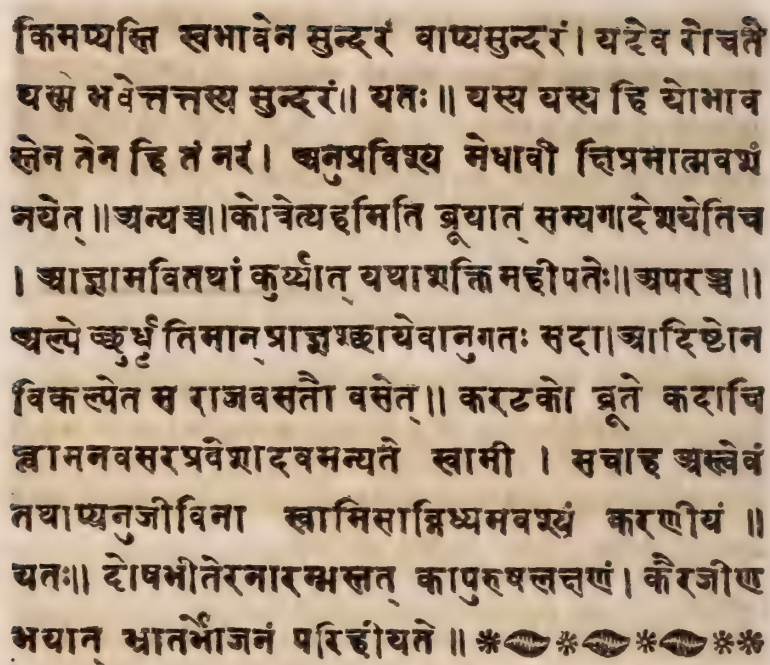 किमप्यस्ति स्वभावेन सुन्दरं वाप्यसुन्दरं। यदेव रोचते
यस्मै भवेत्तत्तस्य सुन्दरं॥ यतः॥ यस्य यस्य हि योभाव
स्तेन तेन हि तं नरं। अनुप्रविश्य मेधावी क्षिप्रमात्मवशं
नयेत्॥अन्यच्च॥कोत्रेत्यहमिति ब्रूयात् सम्यगादेशयेतिच
। आज्ञामवितथां कुर्य्यात् यथाशक्ति महीपतेः॥अपरञ्च॥
अल्पेच्छुर्धृतिमान् प्राज्ञश्छायेवानुगतः सदा।आदिष्टोन
विकल्पेत स राजवसतौ वसेत्॥ करटको ब्रूते कदाचि
त्त्वामनवसरप्रवेशादवमन्यते स्वामी । सचाह अस्त्वेवं
तथाप्यनुजीविना स्वामिसान्निध्यमवश्यं करणीयं ॥
यतः॥ दोषभीतेरनारम्भस्तत् कापुरुषलक्षणं। कैरजीर्ण
भयात् भ्रातर्भोजनं परिहीयते ॥